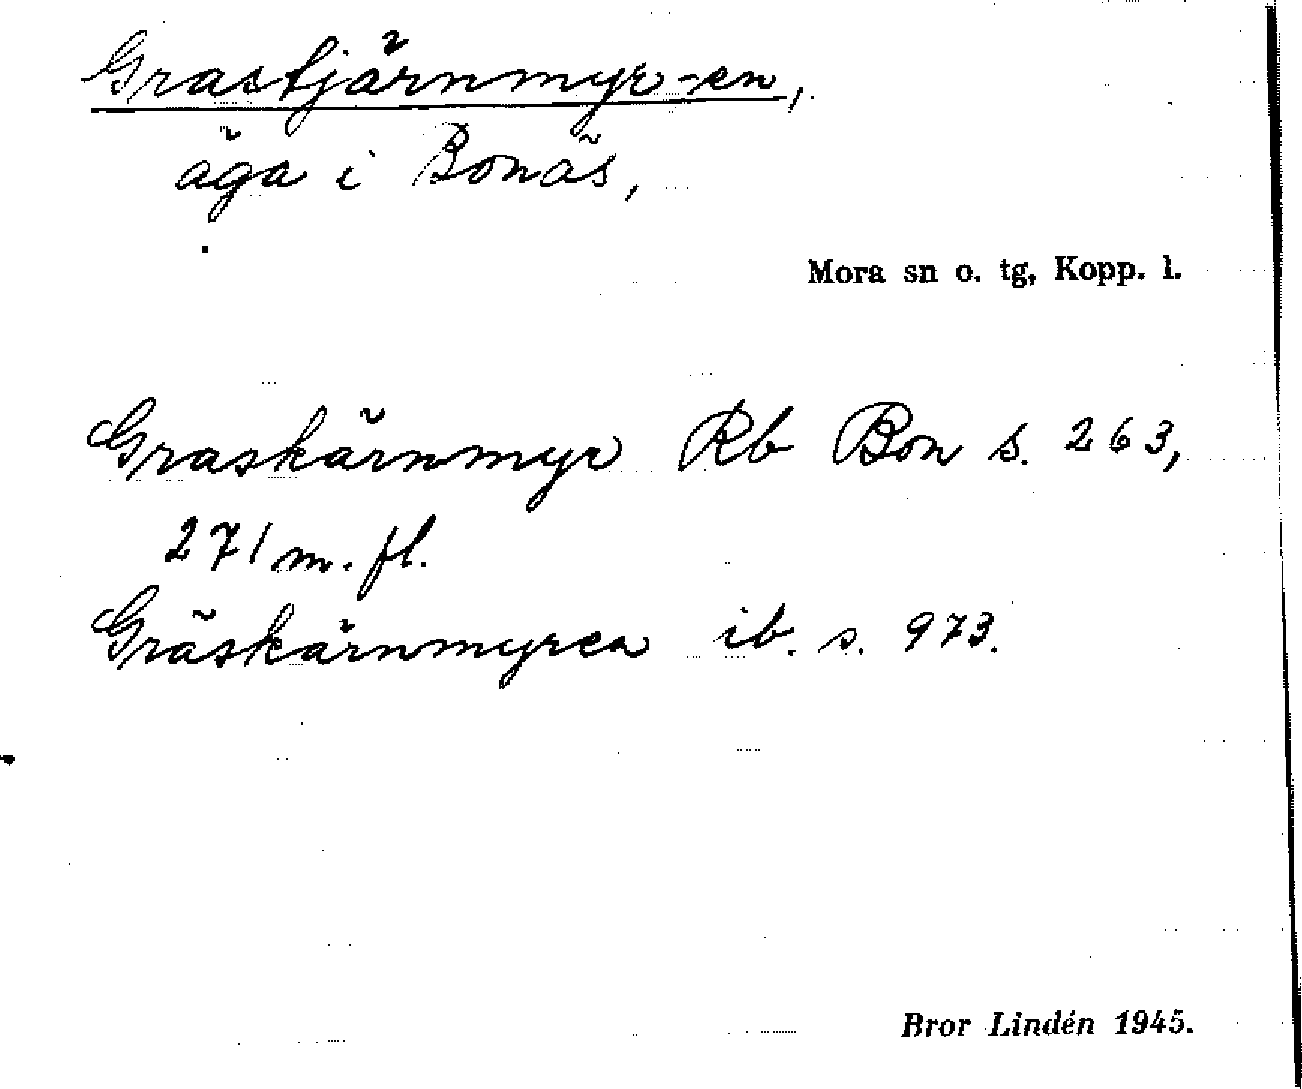 Grastjärnmyr-en,
äga i Bonäs,
Mora sn o. tg, Kopp. l.
Graskärnmyr Rb Bon s. 263,
271 m. fl.
Gräskärnmyren ib. s. 973.
Bror Lindén 1945.